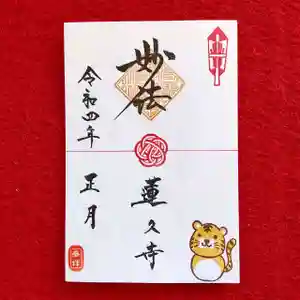 妙法
令和四年 正月
蓮久寺